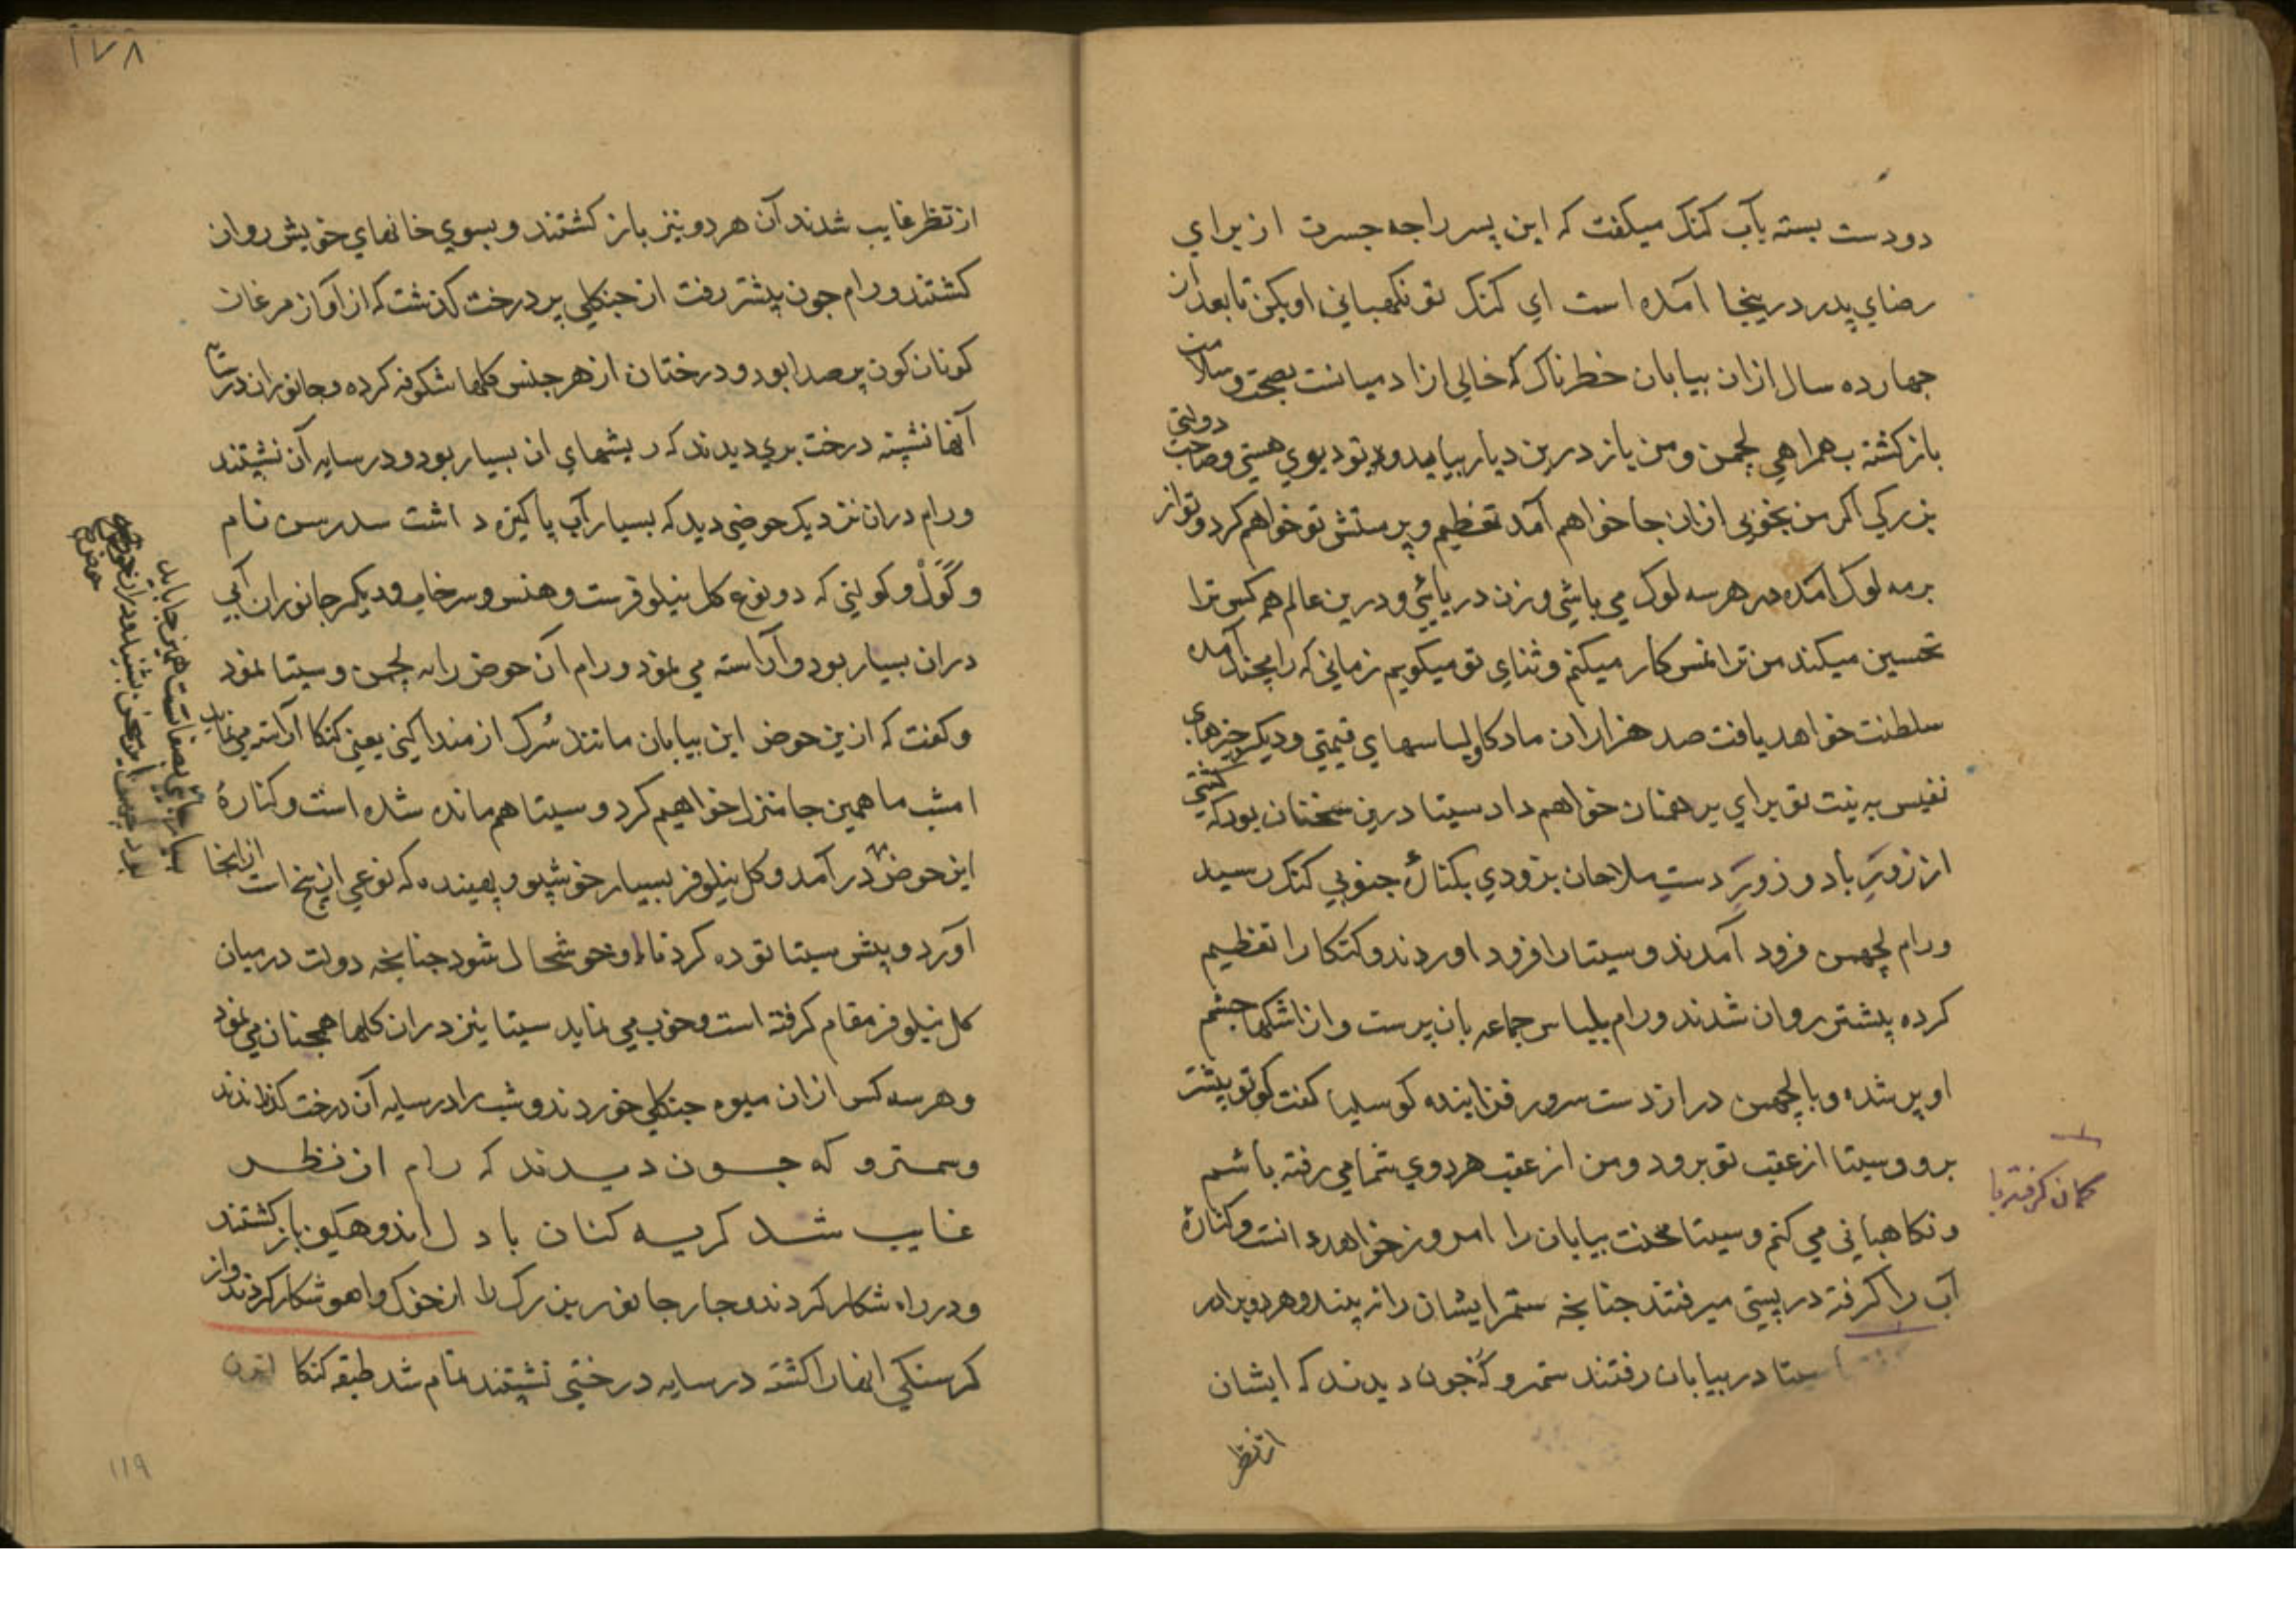 دو دست بسته بآب کنک میکفت که این پسر راجه جسرت از برای
رضای پدر درینجا آمده است ای کنک تو نکهبانی او بکن تا بعد از
جهارده سال ازان بیابان خطرناک که خالی از ادمیانست بصحت و سلامت
باز کشته بهمراهی لچمن و من باز درین دیار بیاید و تو دیوی هستی و صاحب دولتی
بزرکی اکر من بخوبی ازان جا خواهم آمد تعظیم و پرستش تو خواهم کرد و تو از
برمه لوک آمده در هر سه لوک می باشی و زن دریایی و درین عالم همه کس ترا
تحسین میکند من ترا نمسکار میکنم و ثنای تو میکویم زمانی که رامچند آمده
سلطنت خواهد یافت صد هزاران ماد کاو و لباسهای قیمتی و دیکر چیزهای
نفیس به نیت تو برای برهمنان خواهم داد سیتا درین سخنان بود که کشتی
از زور باد و زور دست ملاحان بزودی بکنارۀ جنوبی کنک رسید
و رام لچهمن فرود آمدند و سیتا را فرود اوردند و کنکا را تعظیم
کرده پیشتر روان شدند و رام بلباس جماعه بان پرست و از اشکها چشم
او پر شده و با لچهمن دراز دست سرور فزاینده کوسلیا کفت کو تو پیشتر
برو و سیتا از عقب تو برود و من از عقب هر دوی شما می رفته باشم
و نکاهبانی می کنم و سیتا محنت بیابان را امروز خواهد دانست و کنارۀ
آب را کرفته در پستی میرفتند جنانچه ستمر ایشان را نه بیند و هر دو برادر
کمان کرفته با
سیتا در بیابان رفتند ستمر و کُه جون دیدند که ایشان
از نظر
۱۷۸
از نظر غایب شدند آن هر دو نیز باز کشتند و بسوی خانهای خویش روان
کشتند و رام جون پیشتر رفت از جنکلی پر درخت کذشت که از آواز مرغان
کوناکون پر صدا بود و درختان از هر جنس کلها شکوفه کرده و جانوران در سایه
آنها نشسته درخت بری دیدند که ریشهای ان بسیار بود و در سایه آن نشستند
و رام دران نزدیک حوضی دید که بسیار آب پاکیزه داشت سدرسن نام
و کَوَلْ و کولنی که دو نوع کل نیلوفرست و هنس و سرخاب و دیکر جانوران آبی
دران بسیار بود و آراسته می نمود و رام آن حوض را به لچمن و سیتا نمود
و کفت که ازین حوض این بیابان مانند سُرک از منداکنی یعنی کنکا آراسته می نماید
امشب ما همین جا منزل خواهیم کرد و سیتا هم مانده شده است و کنارۀ
این حوض در آمد و کل نیلوفر بسیار خوشبو و بهینده که نوعی از بیخ است از انجا
آورد و پیش سیتا توده کرد تا او خوشحال شود جنانچه دولت درمیان
کل نیلوفر مقام کرفته است و خوب می نماید سیتا نیز دران کلها همجنان می نمود
و هر سه کس ازان میوه جنکلی خوردند و شب را در سایه آن درخت کذراندند
و ستمر و که جون دیدند که رام از نظر
غایب شد کریه کنان با دل اندوهکین باز کشتند
و در راه شکار کردند و جار جانور بزرک را از خوک و اهو شکار کردند و از
کرسنکی انها را کشته در سایه درختی نشستند تمام شد طبقه کنکا
۱۱۹